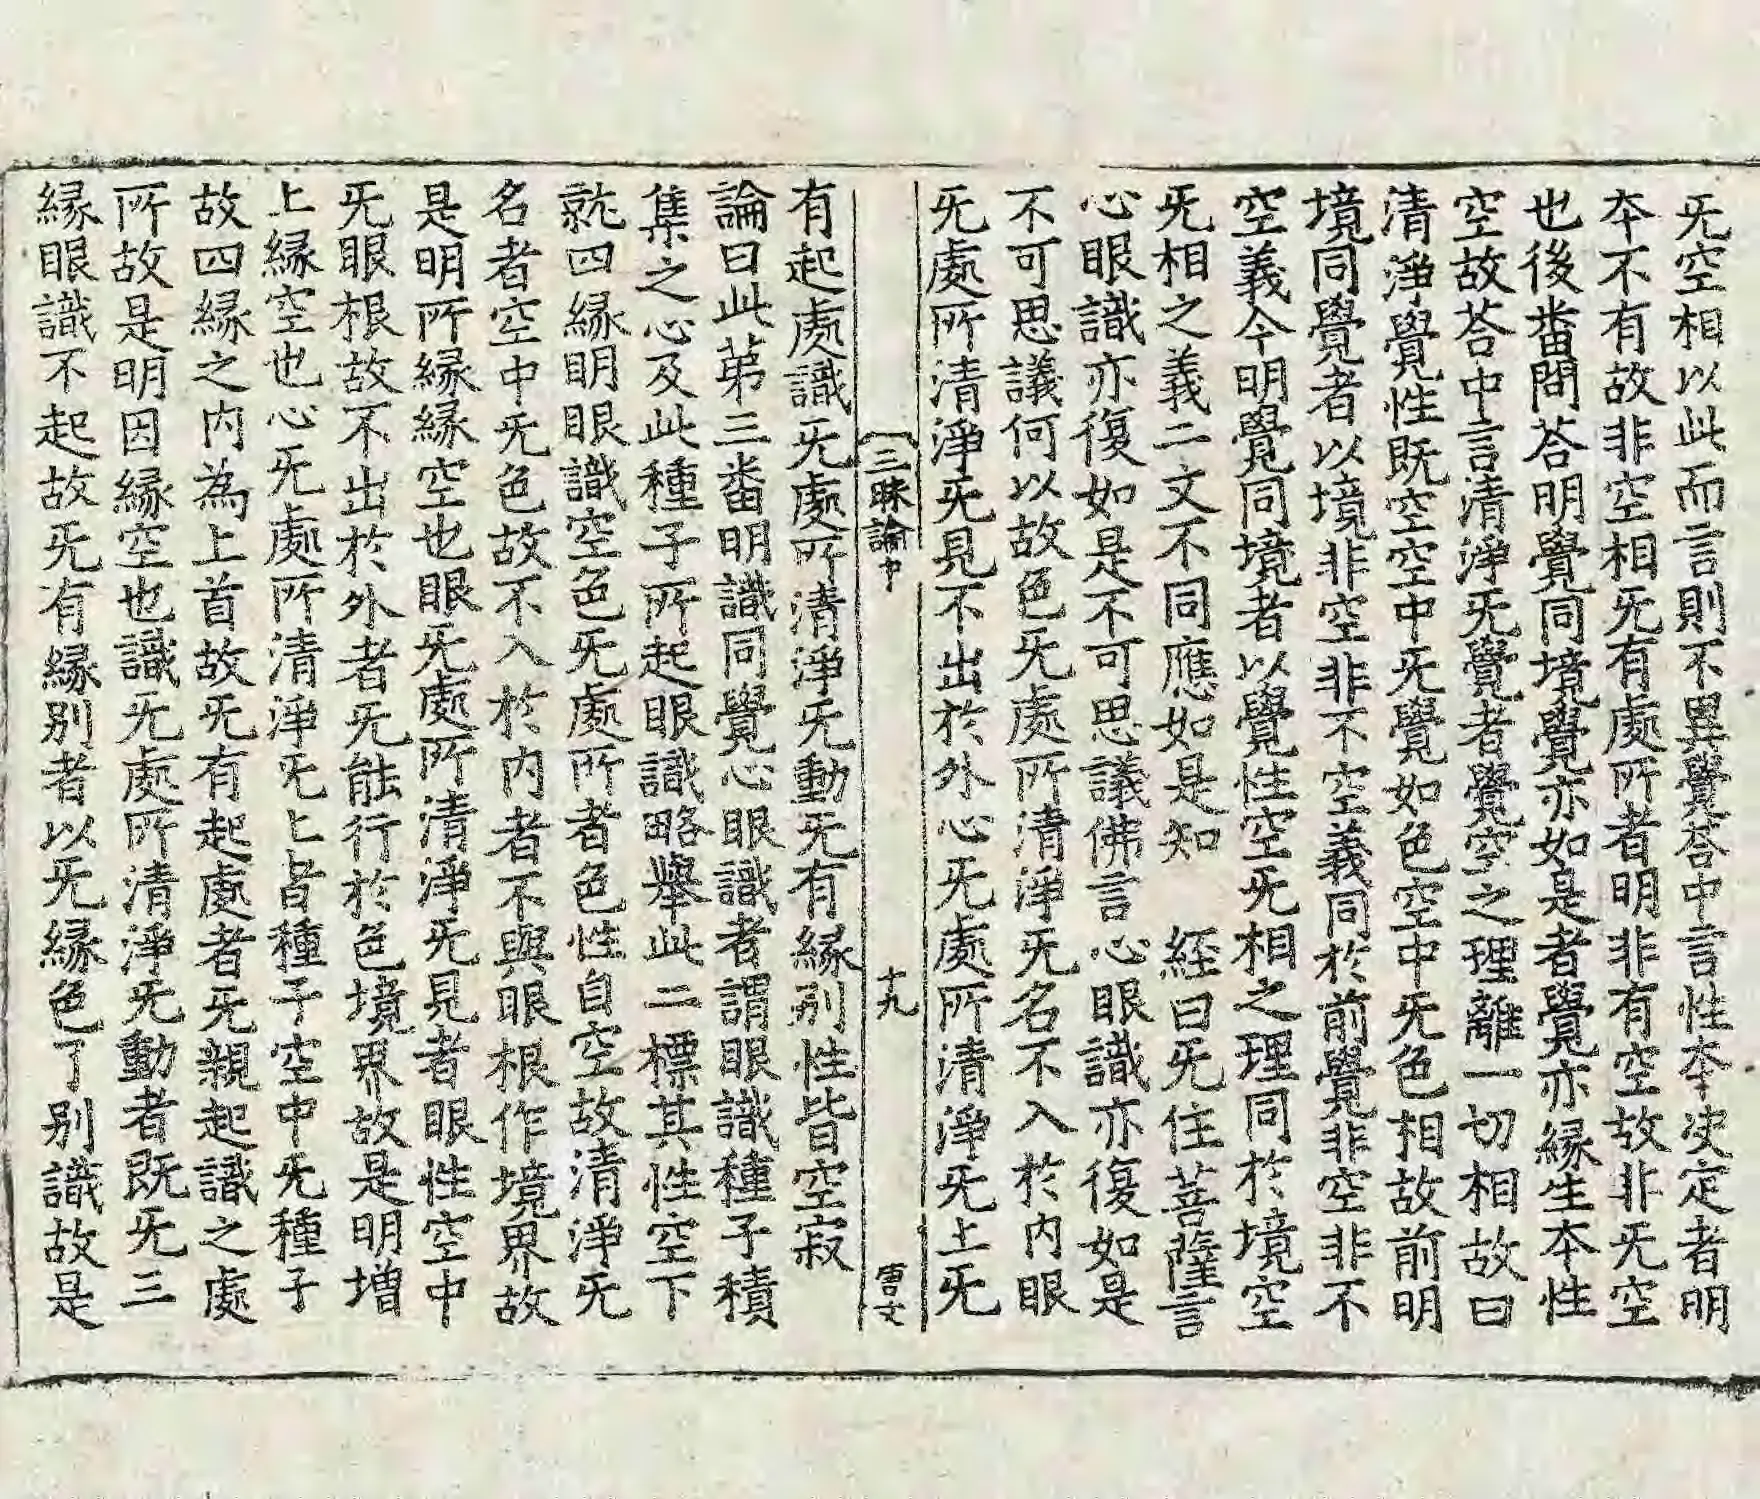 无空相以此而言則不異覺荅中言性本决定者明
本不有故非空相无有處所者明非有空故非无空
也後畨問荅明覺同境覺亦如是者覺亦緣生本性
空故荅中言清淨无覺者覺空之理離一切相故曰
清淨覺性既空空中无覺如色空中无色相故前明
境同覺者以境非空非不空義同於前覺非空非不
空義今明覺同境者以覺性空无相之理同於境空
无相之義二文不同應如是知　經曰无住菩薩言
心眼識亦復如是不可思議佛言心眼識亦復如是
不可思議何以故色无處所清淨无名不入於内眼
无處所清淨无見不出於外心无處所清淨无上无
三昧論中　十九
有起處識无處所清淨无動无有緣别性皆空寂
論曰此苐三畨明識同覺心眼識者謂眼識種子積
集之心及此種子所起眼識略舉此二標其性空下
就四緣明眼識空色无處所者色性自空故清淨无
名者空中无色故不入於内者不與眼根作境界故
是明所緣緣空也眼无處所清淨无見者眼性空中
无眼根故不出於外者无能行於色境界故是明增
上緣空也心无處所清淨无上者種子空中无種子
故四緣之内為上首故无有起處者无親起識之處
所故是明因緣空也識无處所清淨无動者既无三
緣眼識不起故无有緣别者以无緣色了别識故是